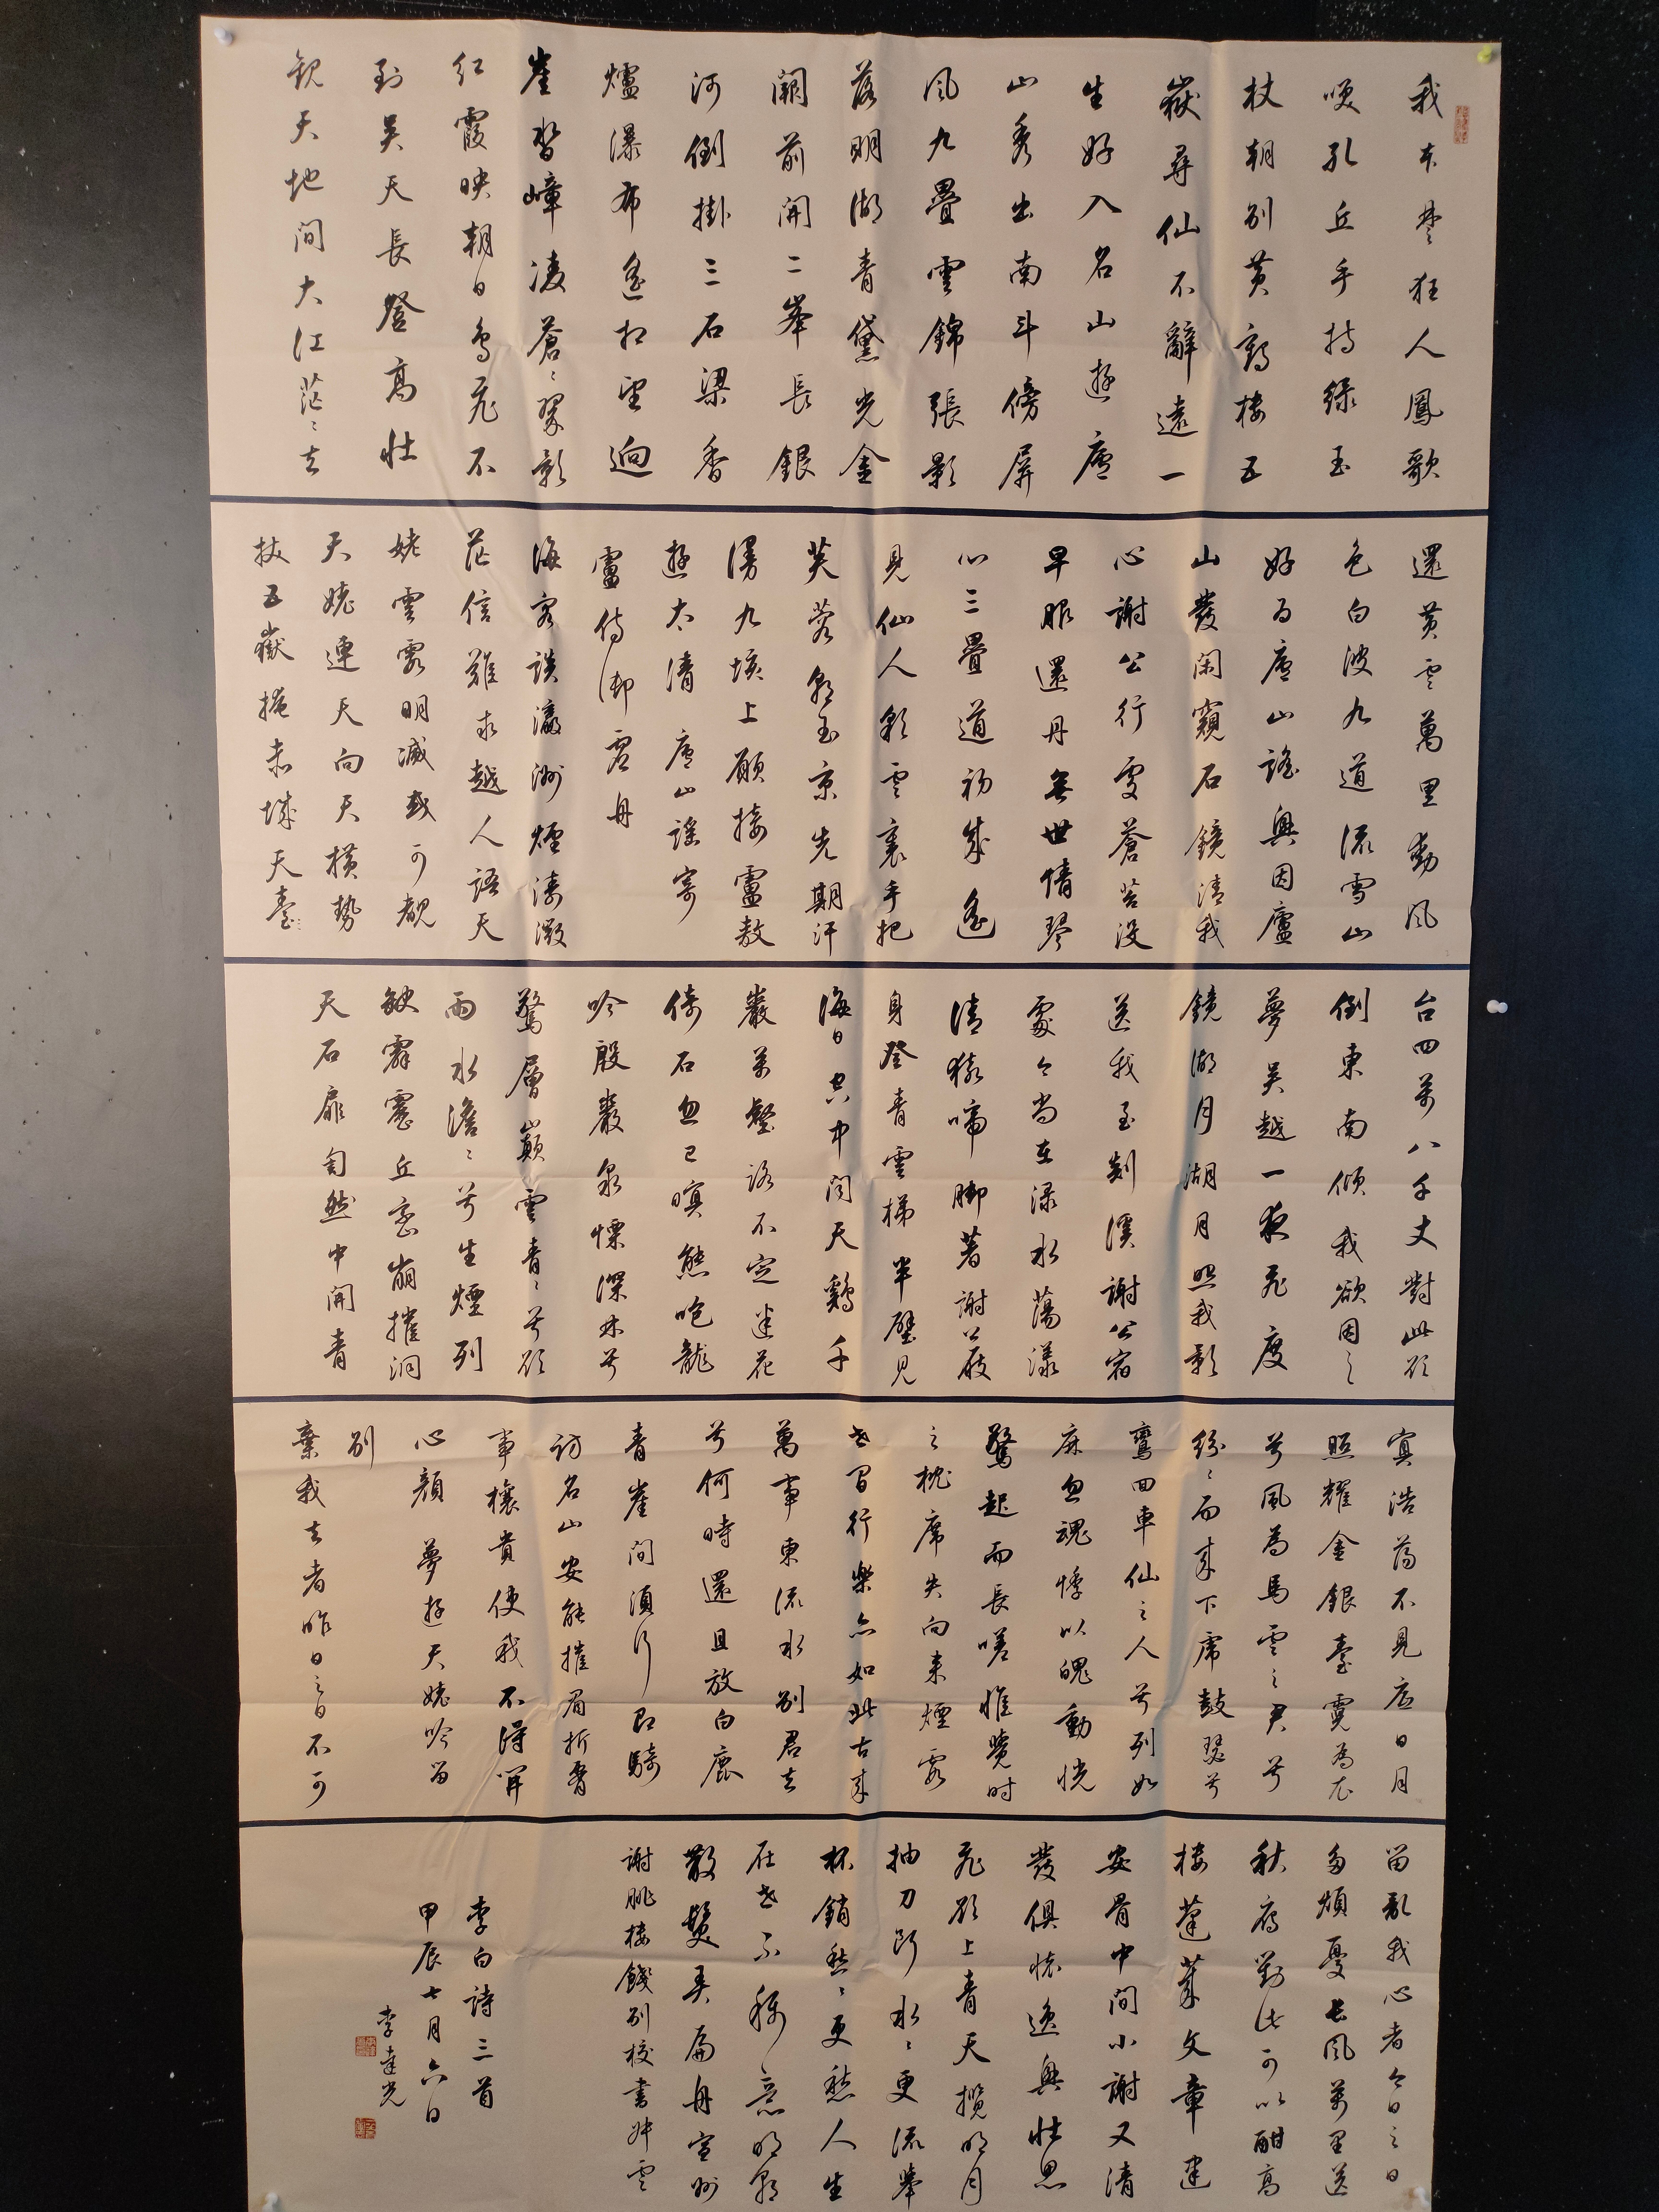 我本楚狂人鳳歌
咲孔丘手持綠玉
杖朝別黃鶴樓五
嶽尋仙不辭遠一
生好入名山遊廬
山秀出南斗傍屏
風九疊雲錦張影
落明湖青黛光金
闕前開二峯長銀
河倒掛三石梁香
爐瀑布遙相望迴
崖沓嶂凌蒼〻翠影
紅霞映朝日鳥飛不
到吳天長登高壯
觀天地間大江茫〻去
還黃雲萬里動風
色白波九道流雪山
好為廬山謠興因廬
山發閑窺石鏡清我
心謝公行處蒼苔沒
早服還丹無世情琴
心三疊道初成遙
見仙人彩雲裏手把
芙蓉朝玉京先期汗
漫九垓上願接盧敖
遊太清 廬山謠寄
盧侍御虛舟
海客談瀛洲煙濤微
茫信難求越人語天
姥雲霞明滅或可覩
天姥連天向天橫勢
拔五嶽掩赤城天臺
台四萬八千丈對此欲
倒東南傾我欲因之
夢吳越一夜飛度
鏡湖月湖月照我影
送我至剡溪謝公宿
處今尚在淥水蕩漾
清猿啼脚著謝公屐
身登青雲梯半壁見
海日空中聞天鷄千
巖萬壑路不定迷花
倚石忽已暝熊咆龍
吟殷巖泉慄深林兮
驚層巔雲青〻兮欲
雨水澹〻兮生煙列
缺霹靂丘巒崩摧洞
天石扉訇然中開青
冥浩蕩不見底日月
照耀金銀臺霓為衣
兮風為馬雲之君兮
紛〻而來下虎鼓瑟兮
鸞回車仙之人兮列如
麻忽魂悸以魄動恍
驚起而長嗟惟覺時
之枕席失向來煙霞
世間行樂亦如此古來
萬事東流水別君去
兮何時還且放白鹿
青崖間須行即騎
訪名山安能摧眉折腰
事權貴使我不得開
心顏 夢遊天姥吟留
別
棄我去者昨日之日不可
留亂我心者今日之日
多煩憂長風萬里送
秋雁對此可以酣高
樓蓬萊文章建
安骨中間小謝又清
發俱懷逸興壯思
飛欲上青天攬明月
抽刀斷水〻更流舉
杯銷愁〻更愁人生
在世不稱意明朝
散髮弄扁舟宣州
謝朓樓餞別校書叔雲
李白詩三首
甲辰七月六日
李達光